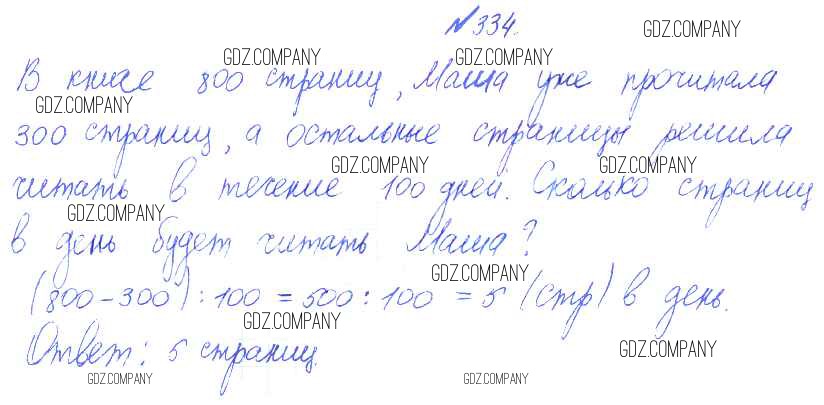 № 334.
GDZ.COMPANY
GDZ.COMPANY GDZ.COMPANY
В книге 800 страниц, Маша уже прочитала
GDZ.COMPANY
300 страниц, а остальные страницы решила
GDZ.COMPANY GDZ.COMPANY
читать в течение 100 дней. Сколько страниц
GDZ.COMPANY
в день будет читать Маша?
GDZ.COMPANY
(800-300):100 = 500:100 = 5 (стр) в день.
GDZ.COMPANY
Ответ: 5 страниц.
GDZ.COMPANY
GDZ.COMPANY GDZ.COMPANY